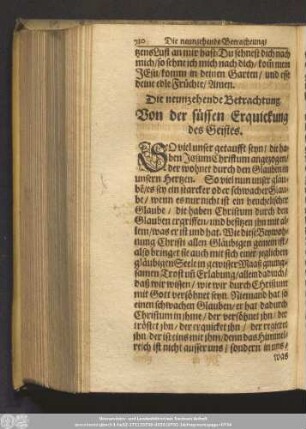 730 Die neunzehende Betrachtung/
tzens Lust an mir hast: Du sehnest dich nach
mich/ so sehne ich mich nach dich/ kom̃ mein
JEsu/ kom̃ in deinen Garten/ und eße
deine edle Früchte/ Amen.
Die neunzehende Betrachtung
Von der süssen Erquickung
des Geistes.
SO viel unser getaufft seyn/ die ha-
ben JEsum Christum angezogen/
der wohnet durch den Glauben in
unsern Hertzen. So viel nun unser gläu-
be/ es sey ein starcker oder schwacher Glau-
be/ wenn es nur nicht ist ein heuchelischer
Glaube/ die haben Christum durch den
Glauben ergriffen/ und besitzen ihn mit al-
lem/ was er ist und hat. Wie diese Beywoh-
nung Christi allen Gläubigen gemein ist/
also bringet sie auch mit sich einer jeglichen
gläubigen Seele in gewisser Maaß gnung-
samen Trost uñ Erlabung/ allen dadurch/
daß wir wissen/ wie wir durch Christum
mit Gott versöhnet seyn. Niemand hat so
einen schwachen Glauben/ er hat dadurch
Christum in ihme/ der versöhnet ihn/ der
tröstet ihn/ der erquicket ihn/ der regieret
ihn/ der ist eins mit ihm/ denn das Himmel-
reich ist nicht ausser uns/ sondern in uns/
was